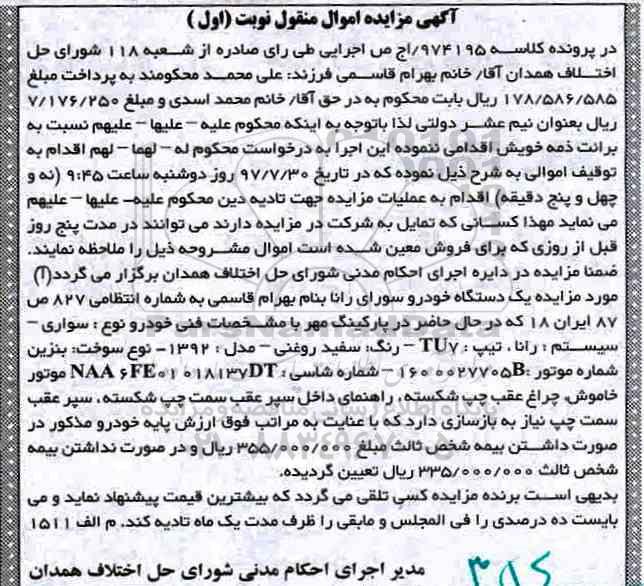 آگهی مزایده اموال منقول نوبت (اول )
در پرونده کلاسه ۹۷۴۱۹۵/اج ص اجرایی طی رای صادره از شعبه ۱۱۸ شورای حل
اختلاف همدان آقا/ خانم بهرام قاسمی فرزند: علی محمد محکومند به پرداخت مبلغ
۱۷۸/۵۸۶/۵۸۵ ریال بابت محکوم به در حق آقا/ خانم محمد اسدی و مبلغ ۷/۱۷۶/۲۵۰
ریال بعنوان نیم عشر دولتی لذا باتوجه به اینکه محکوم علیه – علیها – علیهم نسبت به
برائت ذمه خویش اقدامی ننموده این اجرا به درخواست محکوم له – لهما – لهم اقدام به
توقیف اموالی به شرح ذیل نموده که در تاریخ ۹۷/۷/۳۰ روز دوشنبه ساعت ۹:۴۵ (نه و
چهل و پنج دقیقه) اقدام به عملیات مزایده جهت تادیه دین محکوم علیه– علیها – علیهم
می نماید مهذا کسانی که تمایل به شرکت در مزایده دارند می توانند در مدت پنج روز
قبل از روزی که برای فروش معین شده است اموال مشروحه ذیل را ملاحظه نمایند.
ضمنا مزایده در دایره اجرای احکام مدنی شورای حل اختلاف همدان برگزار می گردد(آ)
مورد مزایده یک دستگاه خودرو سورای رانا بنام بهرام قاسمی به شماره انتظامی ۸۲۷ ص
۸۷ ایران ۱۸ که در حال حاضر در پارکینگ مهر با مشخصات فنی خودرو نوع : سواری –
سیستم : رانا ، تیپ : TU۷ – رنگ: سفید روغنی – مدل : ۱۳۹۲- نوع سوخت: بنزین
شماره موتور :۱۶۰۰۰۲۷۷۰۵B – شماره شاسی : NAA ۶FE۰۱ ۰۱۸۱۳۷DT موتور
خاموش، چراغ عقب چپ شکسته ، راهنمای داخل سپر عقب سمت چپ شکسته ، سپر عقب
سمت چپ نیاز به بازسازی دارد که با عنایت به مراتب فوق ارزش پایه خودرو مذکور در
صورت داشتن بیمه شخص ثالث مبلغ ۳۵۵/۰۰۰/۰۰۰ ریال و در صورت نداشتن بیمه
شخص ثالث ۳۳۵/۰۰۰/۰۰۰ ریال تعیین گردیده.
بدیهی است برنده مزایده کسی تلقی می گردد که بیشترین قیمت پیشنهاد نماید و می
بایست ده درصدی را فی المجلس و مابقی را ظرف مدت یک ماه تادیه کند. م الف ۱۵۱۱
مدیر اجرای احکام مدنی شورای حل اختلاف همدان